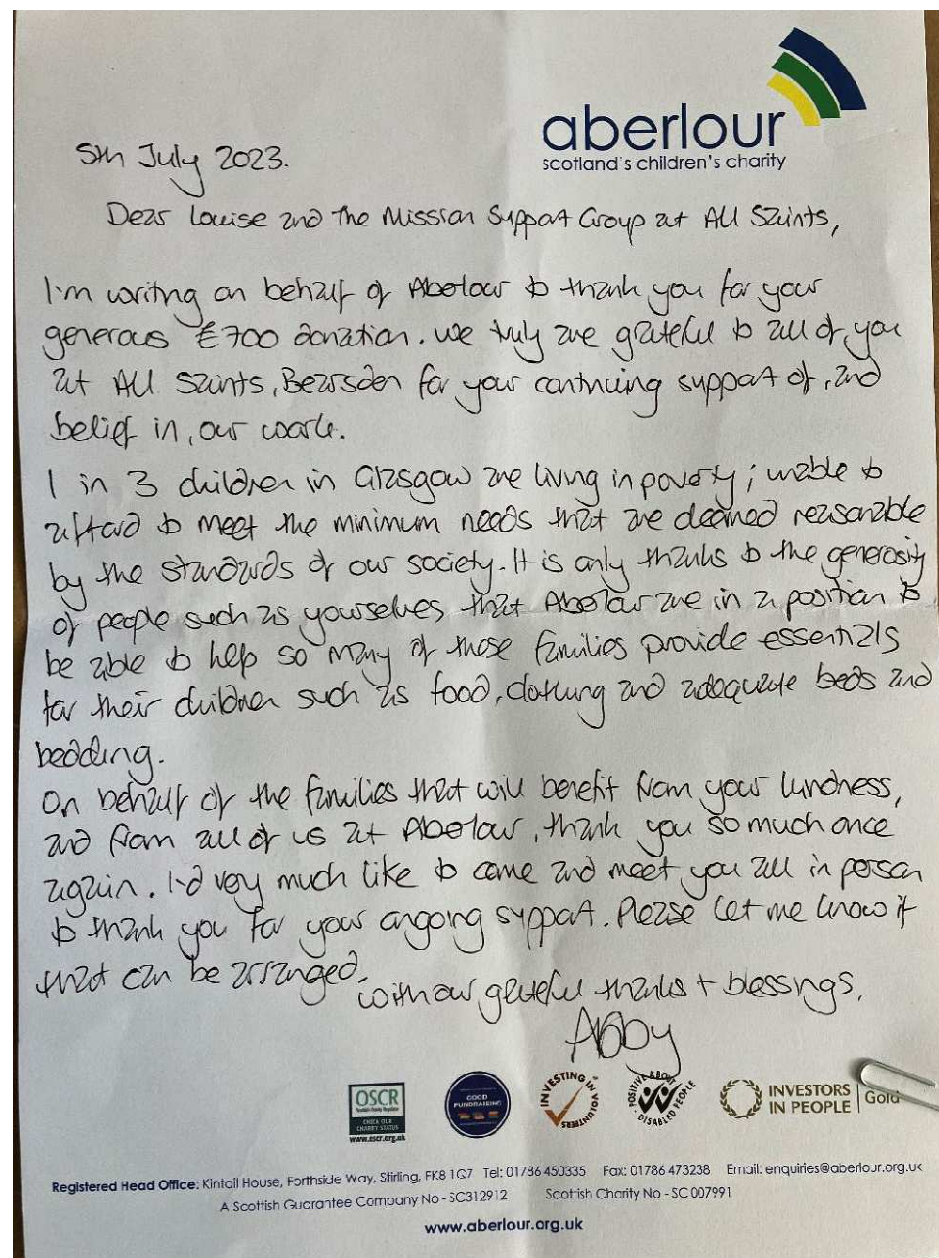 aberlour
scotland's children's charity
5th July 2023.
Dear Louise and the Mission Support Group at All Saints,
I'm writing on behalf of Aberlour to thank you for your
generous £700 donation. We truly are grateful to all of you
at All Saints, Bearsden for your continuing support of, and
belief in, our work.
1 in 3 children in Glasgow are living in poverty; unable to
afford to meet the minimum needs that are deemed reasonable
by the standards of our society. It is only thanks to the generosity
of people such as yourselves that Aberlour are in a position to
be able to help so many of those families provide essentials
for their children such as food, clothing and adequate beds and
bedding.
On behalf of the families that will benefit from your kindness,
and from all of us at Aberlour, thank you so much once
again. I'd very much like to come and meet you all in person
to thank you for your ongoing support. Please let me know if
that can be arranged.
With our grateful thanks + blessings,
Abby
OSCR
Scottish Charity Regulator
CHECK OUR
CHARITY STATUS
www.oscr.org.uk
GOOD
FUNDRAISING
INVESTING IN VOLUNTEERS
POSITIVE ABOUT DISABLED PEOPLE
INVESTORS
IN PEOPLE Gold
Registered Head Office: Kintail House, Forthside Way, Stirling, FK8 1QZ Tel: 01786 450335 Fax: 01786 473238 Email: enquiries@aberlour.org.uk
A Scottish Guarantee Company No - SC312912 Scottish Charity No - SC007991
www.aberlour.org.uk